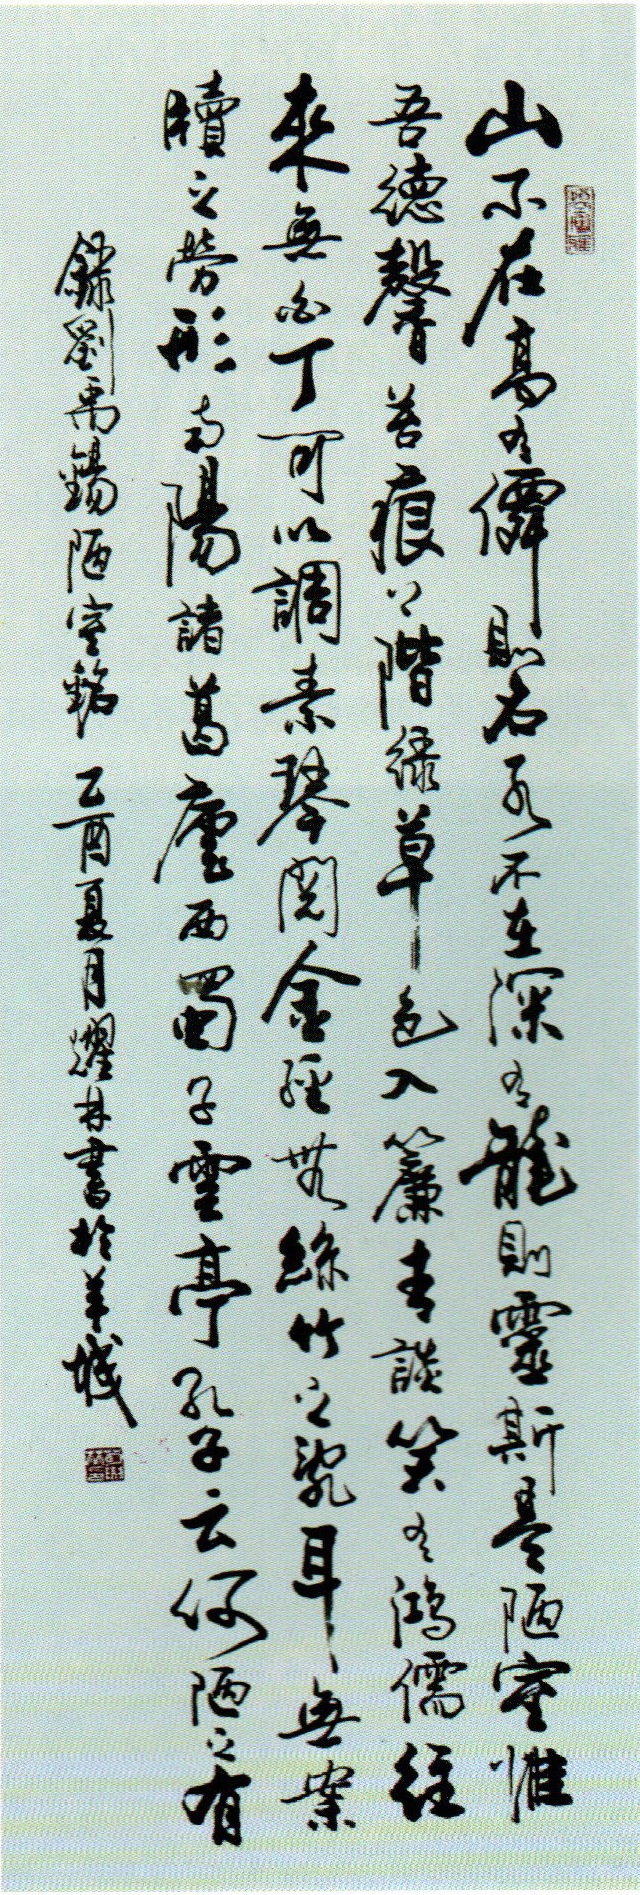 山不在高有僊則名水不在深有龍則靈斯是陋室惟
吾德馨苔痕上階緑草色入簾青談笑有鴻儒往
來無白丁可以調素琴閱金經無絲竹之亂耳無案
牘之勞形南陽諸葛廬西蜀子雲亭孔子云何陋之有
錄劉禹錫陋室銘 乙酉夏月耀林書於羊城